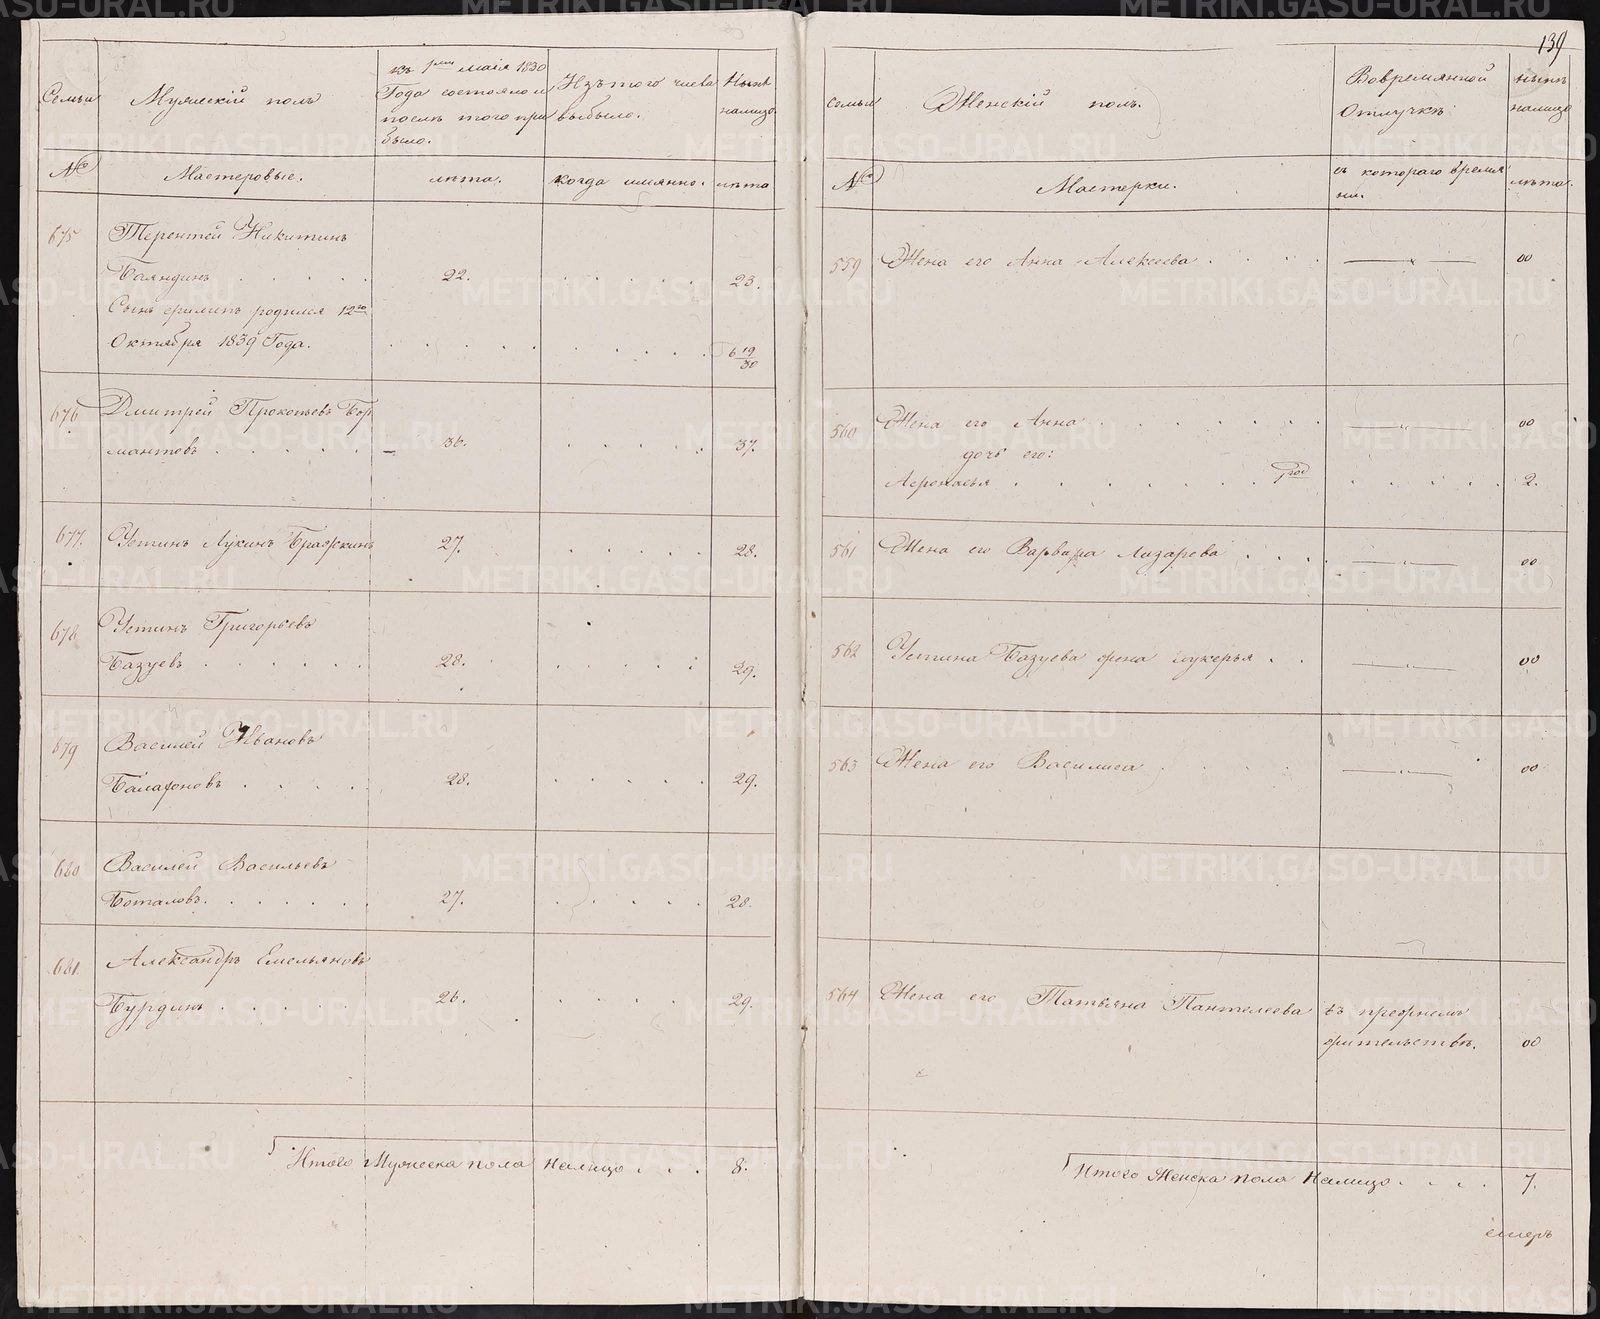 139
Семьи
Мужескiй полъ
къ 1му маiя 1830
Года состояло и
послѣ того при
было.
Изъ того числа
выбыло.
Нынѣ
налицо.
№
Мастеровые.
лѣта.
когда имянно.
лѣта
675
Терентей Никитинъ
Баяндинъ . . . . . 22. . . . . . 23.
Сынъ родился 12го
Октября 1839 Года. . . . . . . . . . 6 19/30
676
Дмитрей Прокопьевъ Бор
мантовъ . . . . . 36. . . . . 37.
677.
Устинъ Лукинъ Бражкинъ 27. . . . . . 28.
678
Устинъ Григорьевъ
Базуевъ . . . . . . 28. . . . . . 29.
679
Василей Ивановъ
Балафоновъ . . . . . 28. . . . . . 29.
680
Василей Васильевъ
Боталовъ. . . . . . 27. . . . . . 28.
681.
Александръ Емельяновъ
Бурдинъ . . . . 26. . . . . 29.
Итого Мужеска пола налицо . . . 8.
семьи
Женскiй полъ.
Вовремянной
Отлучкѣ
нынѣ
налицо
№
Мастерки.
съ котораго время
ни.
лѣта.
559
Жена его Анна Алексеева . . . . 00
560
Жена его Анна . . . . . . . 00
дочь его:
Афонасья . . . . . . 1 год . . . . . 2.
561
Жена его Варвара Лазарева . . . 00
562
Устина Базуева жена лукерья . . 00
563
Жена его Василиса . . . . . 00
564
Жена его Татьяна Пантелеева въ прежнемъ
жительствѣ. 00
Итого Женска пола налицо . . . . 7.
METRIKI.GASO-URAL.RU